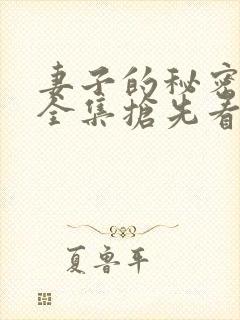 妻子的秘密
全集搶先看
夏魯平